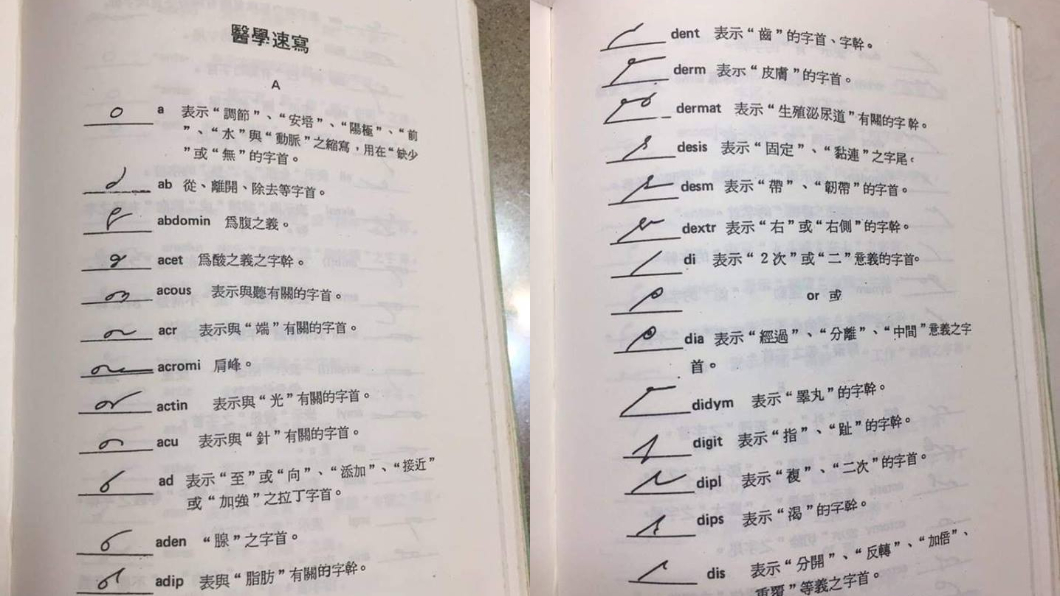 醫學速寫
A
a 表示“調節”、“安培”、“陽極”、“前
”、“水”與“動脈”之縮寫，用在“缺少
”或“無”的字首。
ab 從、離開、除去等字首。
abdomin 爲腹之義。
acet 爲酸之義之字幹。
acous 表示與聽有關的字首。
acr 表示與“端”有關的字首。
acromi 肩峰。
actin 表示與“光”有關的字首。
acu 表示與“針”有關的字首。
ad 表示“至”或“向”、“添加”、“接近”
或“加強”之拉丁字首。
aden “腺”之字首。
adip 表與“脂肪”有關的字幹。
dent 表示“齒”的字首、字幹。
derm 表示“皮膚”的字首。
dermat 表示“生殖泌尿道”有關的字幹。
desis 表示“固定”、“黏連”之字尾。
desm 表示“帶”、“韌帶”的字首。
dextr 表示“右”或“右側”的字幹。
di 表示“2次”或“二”意義的字首。
or 或
dia 表示“經過”、“分離”、“中間”意義之字
首。
didym 表示“睪丸”的字幹。
digit 表示“指”、“趾”的字幹。
dipl 表示“複”、“二次”的字首。
dips 表示“渴”的字幹。
dis 表示“分開”、“反轉”、“加倍”、
重覆”等義之字首。